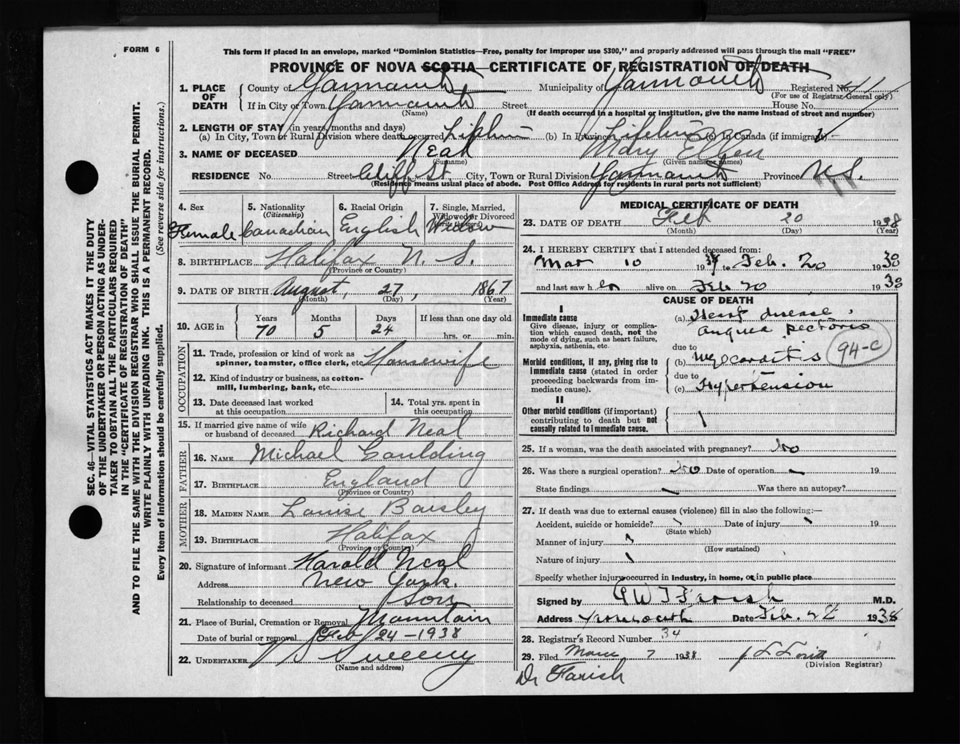 FORM 6
This form if placed in an envelope, marked "Dominion Statistics—Free, penalty for improper use $300," and properly addressed will pass through the mail "FREE"
PROVINCE OF NOVA SCOTIA—CERTIFICATE OF REGISTRATION OF DEATH
1. PLACE OF DEATH County of Yarmouth Municipality of Yarmouth Registered No.
(For use of Registrar-General only)
If in City or Town Yarmouth Street House No.
(Name) (If death occurred in a hospital or institution, give the name instead of street and number)
2. LENGTH OF STAY (in years, months and days)
(a) In City, Town or Rural Division where death occurred (b) In Province (c) In Canada (if immigrant)
3. NAME OF DECEASED Neal Mary Ellen
(Surname) (Given or names)
RESIDENCE No. Street Cliff St. City, Town or Rural Division Yarmouth Province N.S.
(Residence means usual place of abode. Post Office Address for residents in rural parts not sufficient)
4. Sex Female
5. Nationality (Citizenship) Canadian
6. Racial Origin English
7. Single, Married, Widowed or Divorced Widow
8. BIRTHPLACE Halifax N. S.
(Province or Country)
9. DATE OF BIRTH August, 27, 1867
(Month) (Day) (Year)
10. AGE in Years Months Days If less than one day
70 5 24 hrs. or min.
OCCUPATION
11. Trade, profession or kind of work as spinner, teamster, office clerk, etc. Housewife
12. Kind of industry or business, as cotton-mill, lumbering, bank, etc.
13. Date deceased last worked at this occupation
14. Total yrs. spent in this occupation
15. If married give name of wife or husband of deceased Richard Neal
FATHER
16. NAME Michael Goulding
17. BIRTHPLACE England
(Province or Country)
MOTHER
18. MAIDEN NAME Louise Baisley
19. BIRTHPLACE Halifax
(Province or Country)
20. Signature of informant Harold Neal
Address New York.
Relationship to deceased Son
21. Place of Burial, Cremation or Removal Mountain
Date of burial or removal Feb 24-1938
22. UNDERTAKER V S Sweeny
(Name and address)
MEDICAL CERTIFICATE OF DEATH
23. DATE OF DEATH Feb 20 1938
(Month) (Day) (Year)
24. I HEREBY CERTIFY that I attended deceased from:
Mar 10 19 to Feb. 20 1938
and last saw her alive on Feb 20 1938
CAUSE OF DEATH
I
Immediate cause
Give disease, injury or complication which caused death, not the mode of dying, such as heart failure, asphyxia, asthenia, etc.
(a) Heart disease, angina pectoris
due to
Morbid conditions, if any, giving rise to immediate cause (stated in order proceeding backwards from immediate cause).
(b) Myocarditis
94-c
due to
(c) Hypertension
II
Other morbid conditions (if important) contributing to death but not causally related to immediate cause.
25. If a woman, was the death associated with pregnancy? No
26. Was there a surgical operation? No Date of operation 19
State findings Was there an autopsy?
27. If death was due to external causes (violence) fill in also the following:—
Accident, suicide or homicide? Date of injury 19
(State which)
Manner of injury
(How sustained)
Nature of injury
Specify whether injury occurred in industry, in home, or in public place
Signed by G W T Farish M.D.
Address Yarmouth Date Feb. 22 1938
28. Registrar's Record Number 34
29. Filed 7 1938
(Division Registrar)
Dr Farish
SEC. 46—VITAL STATISTICS ACT MAKES IT THE DUTY
OF THE UNDERTAKER OR PERSON ACTING AS UNDER-
TAKER TO OBTAIN ALL THE PARTICULARS REQUIRED
IN THE "CERTIFICATE OF REGISTRATION OF DEATH"
AND TO FILE THE SAME WITH THE DIVISION REGISTRAR WHO SHALL ISSUE THE BURIAL PERMIT.
WRITE PLAINLY WITH UNFADING INK. THIS IS A PERMANENT RECORD.
Every item of information should be carefully supplied. (See reverse side for instructions.)